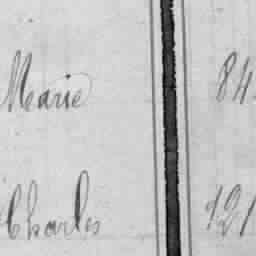 Marie 84.
Charles 121